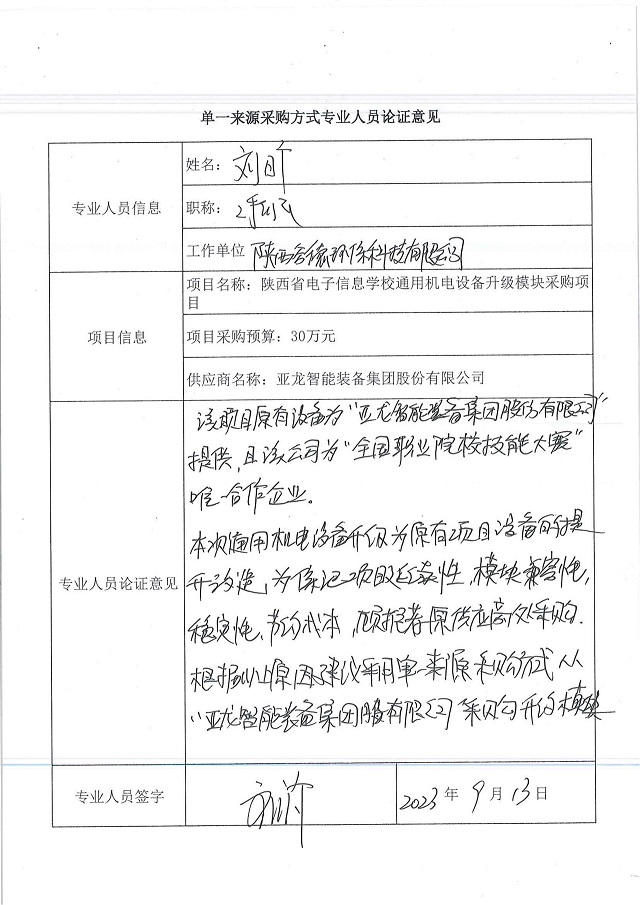 单一来源采购方式专业人员论证意见
专业人员信息
姓名：刘
职称：工程师
工作单位 陕西 环保科技有限公司
项目信息
项目名称：陕西省电子信息学校通用机电设备升级模块采购项
目
项目采购预算：30万元
供应商名称：亚龙智能装备集团股份有限公司
专业人员论证意见
该项目原有设备为"亚龙智能装备集团股份有限公司"
提供，且该公司为"全国职业院校技能大赛"
唯一合作企业。
本次通用机电设备升级为原有项目设备的提
升改造，为保证项目延续性，模块兼容性，
稳定性、节约成本，原供应商处采购.
根据以上原因建议采用单一来源采购方式从
"亚龙智能装备集团股有限公司"采购升级模块
专业人员签字
2023年9月13日